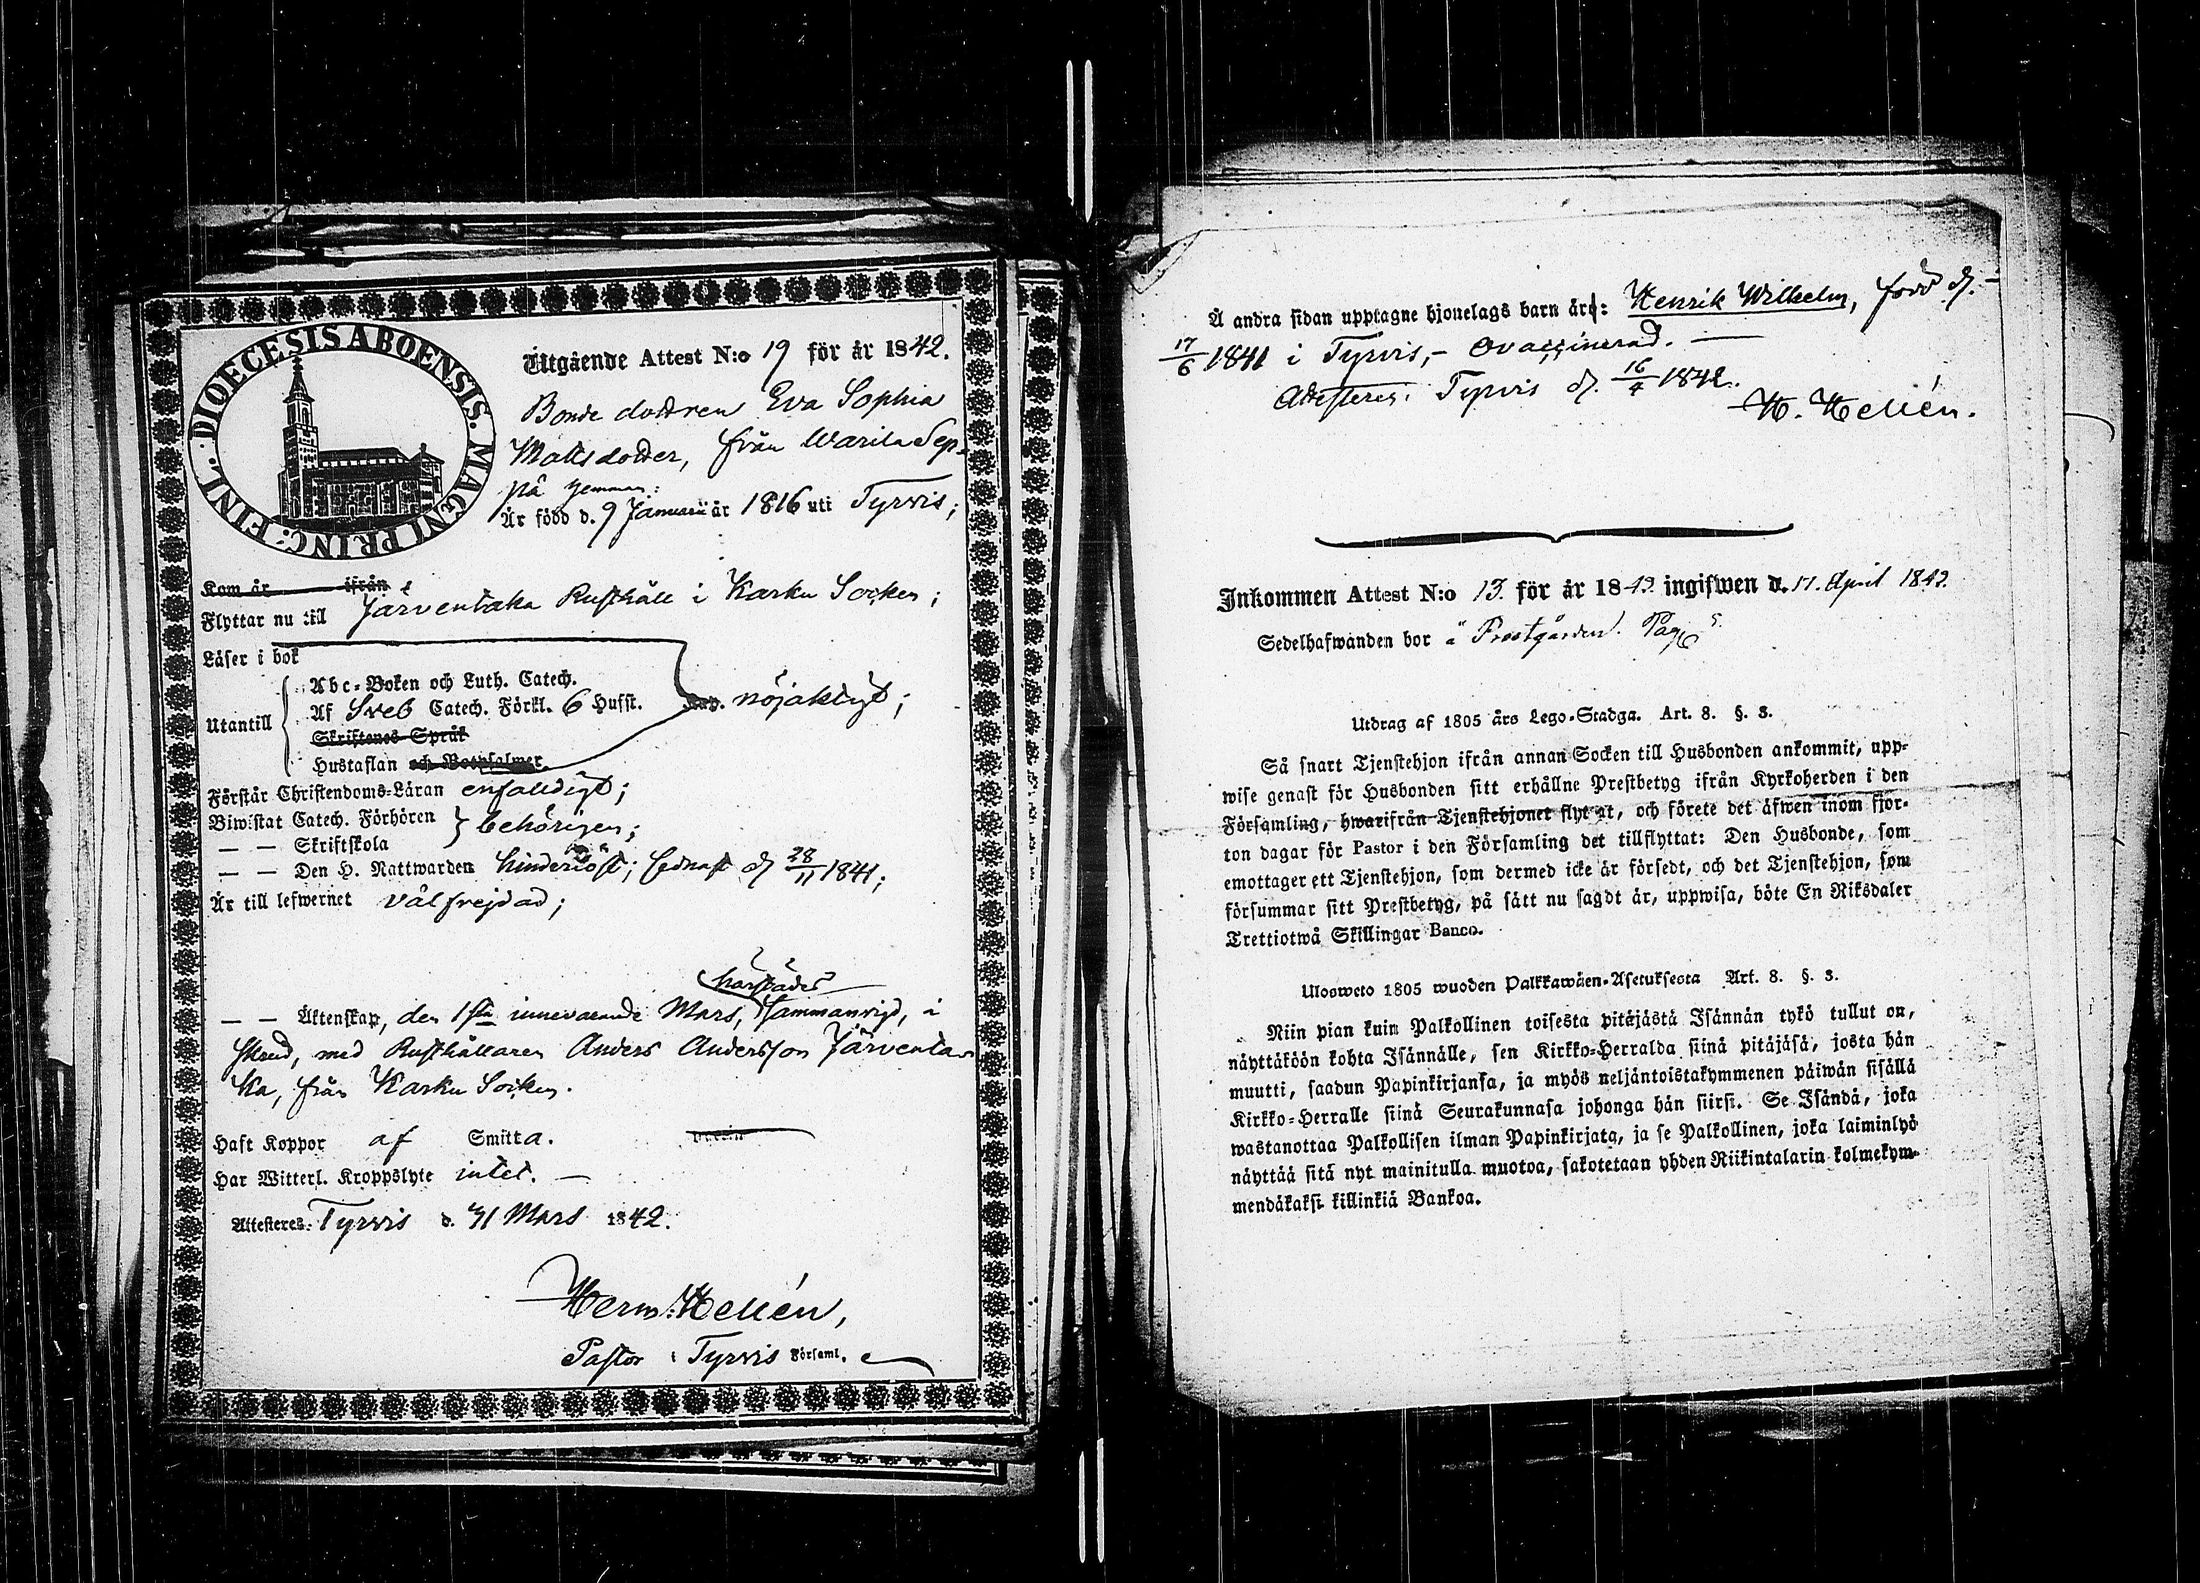 DIOECESIS ABOENSIS. MAGNI PRINC: FINL.:
Utgående Attest N:o 19 för år 1842.
Bonde dottren Eva Sophia
Mattsdotter, från Warila Sep-
pä hemman:
Är född d. 9 Januarii år 1816 uti Tyrvis;
Kom år ifrån
Flyttar nu till Järventaka Rusthåll i Karku Socken;
Läser i bok
Utantill
Abc-Boken och Luth. Catech.
Af Sveb Catech. Förkl. 6 Hufst. nöjaktigt;
Skriftenes Språk
Hustaflan och Botpsalmer.
Förstår Christendoms-Läran enfaldigt;
Biwistat Catech. Förhören
— — Skriftskola } behörigen;
— — Den H. Nattwarden hinderlöst; sednast d. 28/11 1841;
Är till lefwernet välfrejdad;
härstädes
— — Äktenskap, den 1sta innevarande Mars, sammanvigd, i
stånd, med Rusthållaren Anders Andersson Järventa-
ka, från Karku Socken.
Haft Koppor af Smitta.
Har Witterl. Kroppslyte intet. —
Attesteres. Tyrvis d. 31 Mars 1842.
Herm. Hellén,
Pastor i Tyrvis Församl.
Å andra sidan upptagne hjonelags barn äro: Henrik Wilhelm, född d. -
17/6 1841 i Tyrvis, - ovaccinerad. —
Attesteres. Tyrvis d. 16/4 1842.
H. Hellén.
Inkommen Attest N:o 13 för år 1842 ingifwen d. 17. April 1842.
Sedelhafwanden bor å Prestgården. Pag 5
Utdrag af 1805 års Lego-Stadga. Art. 8. §. 3.
Så snart Tjenstehjon ifrån annan Socken till Husbonden ankommit, upp-
wise genast för Husbonden sitt erhållne Prestbetyg ifrån Kyrkoherden i den
Församling, hwarifrån Tjenstehjonet flyttat, och förete det äfwen inom fjor-
ton dagar för Pastor i den Församling det tillflyttat: Den Husbonde, som
emottager ett Tjenstehjon, som dermed icke är försedt, och det Tjenstehjon, som
försummar sitt Prestbetyg, på sätt nu sagdt är, uppwisa, böte En Riksdaler
Trettiotwå Skillingar Banco.
Ulosweto 1805 wuoden Palkkawäen-Asetuksesta Art. 8. §. 3.
Niin pian kuin Palkollinen toisesta pitäjästä Isännän tykö tullut on,
näyttäköön kohta Isännälle, sen Kirkko-Herralda siinä pitäjäsä, josta hän
muutti, saadun Papinkirjansa, ja myös neljäntoistakymmenen päiwän sisällä
Kirkko-Herralle siinä Seurakunnasa johonga hän siirsi. Se Isändä, joka
wastanottaa Palkollisen ilman Papinkirjata, ja se Palkollinen, joka laiminlyö
näyttää sitä nyt mainitulla muotoa, sakotetaan yhden Riikintalarin kolmekym-
mendäkaksi killinkiä Bankoa.